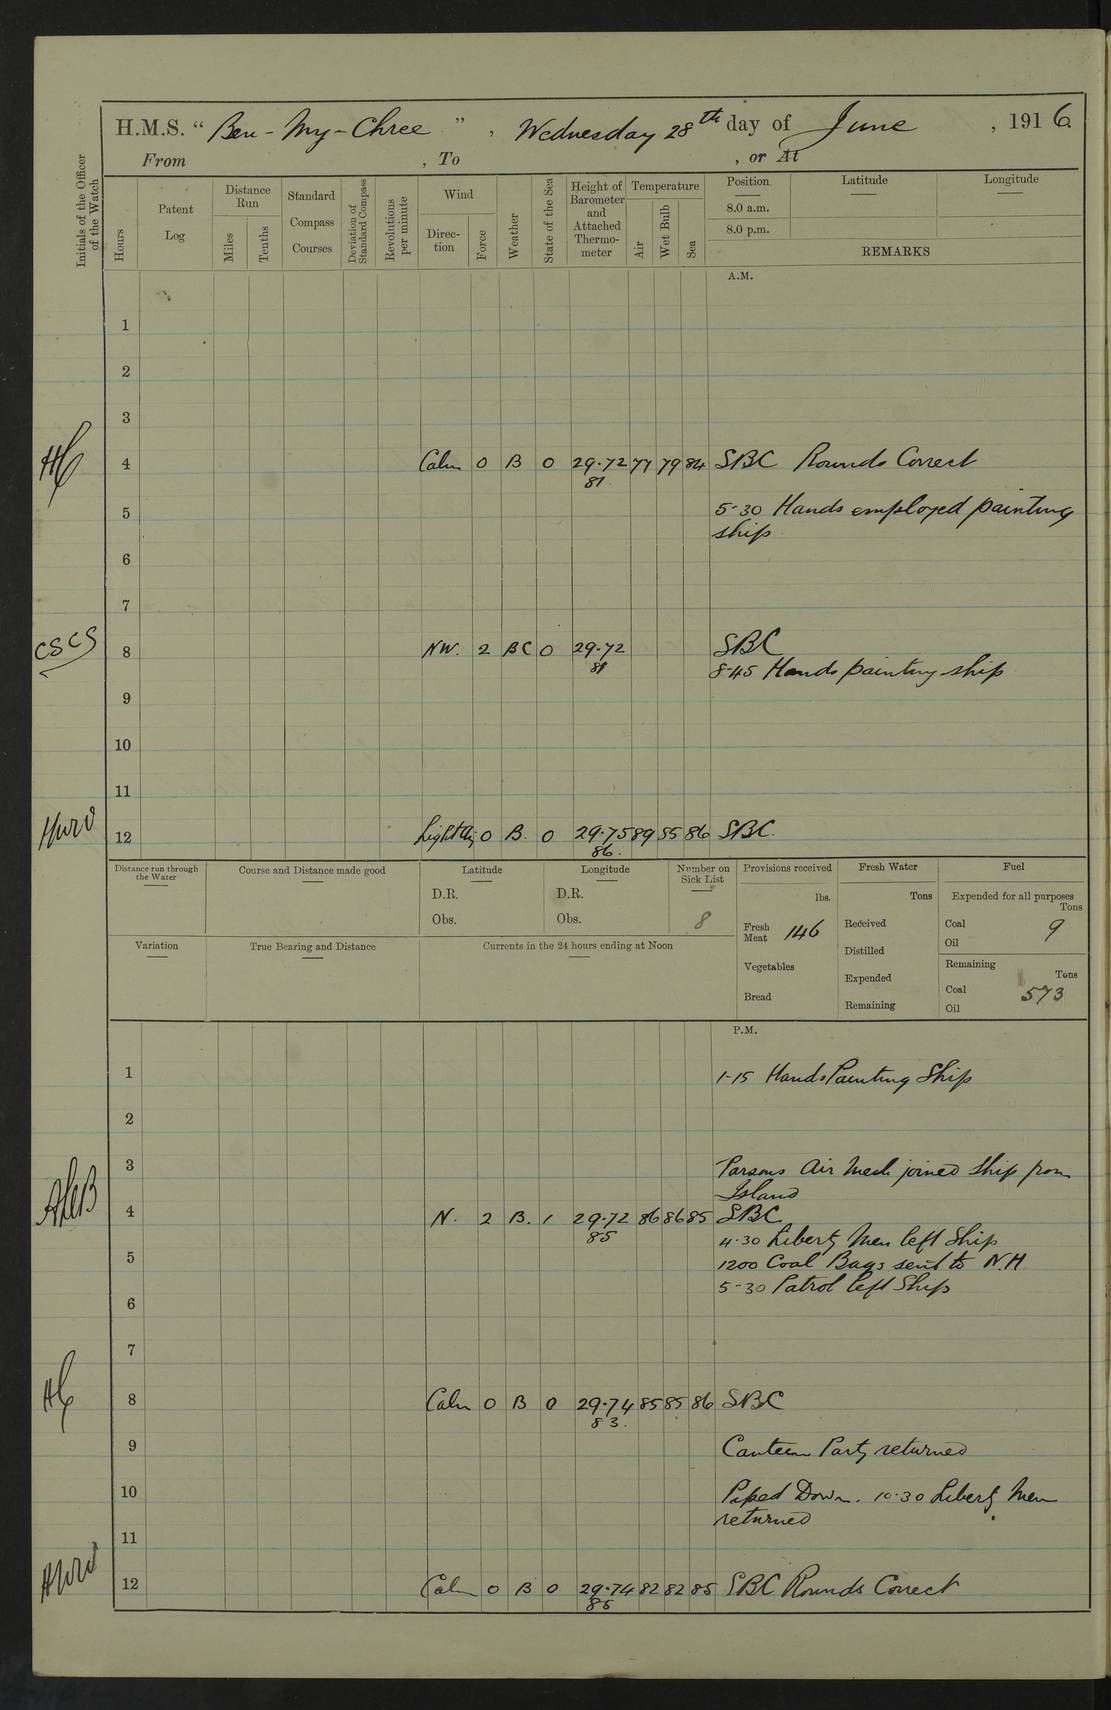 H.M.S. “ Ben-My-Chree ” , Wednesday 28th day of June , 1916.
From , To , or At
Initials of the Officer of the Watch
Hours
Patent Log
Distance Run
Miles
Tenths
Standard Compass Courses
Deviation of Standard Compass
Revolutions per minute
Wind
Direction
Force
Weather
State of the Sea
Height of Barometer and Attached Thermometer
Temperature
Air
Wet Bulb
Sea
Position
8.0 a.m.
8.0 p.m.
Latitude
Longitude
REMARKS
A.M.
1
2
3
4 Calm 0 B 0 29.72 77 79 84 SBC Rounds Correct
81
5 5-30 Hands employed painting
ship
6
7
CSCS 8 NW. 2 BC 0 29.72 SBC
81 8-45 Hands painting ship
9
10
11
12 0 B. 0 29.75 89 85 86 SBC.
86.
Distance run through the Water
Course and Distance made good
Latitude
D.R.
Obs.
Longitude
D.R.
Obs.
Number on Sick List
8
Provisions received
lbs.
Fresh Meat 146
Vegetables
Bread
Fresh Water
Tons
Received
Distilled
Expended
Remaining
Fuel
Expended for all purposes
Tons
Coal 9
Oil
Remaining
Tons
Coal 573
Oil
Variation
True Bearing and Distance
Currents in the 24 hours ending at Noon
P.M.
1 1-15 Hands Painting Ship
2
3 Parsons Air Mech joined ship from
Island
4 N. 2 B. 1 29.72 86 86 85 SBC
85 4.30 Liberty Men left Ship
5 1200 Coal Bags sent to N.H
5-30 Patrol left Ship
6
7
8 Calm 0 B 0 29.74 85 85 86 SBC
83.
9 Canteen Party returned
10 Piped Down. 10.30 Liberty Men
returned
11
12 Calm 0 B 0 29.74 82 82 85 SBC Rounds Correct
85